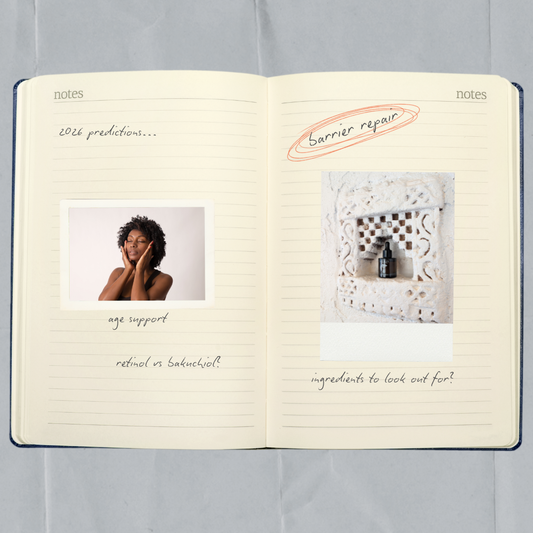 notes
2026 predictions...
age support
retinol vs bakuchiol?
notes
barrier repair
ingredients to look out for?